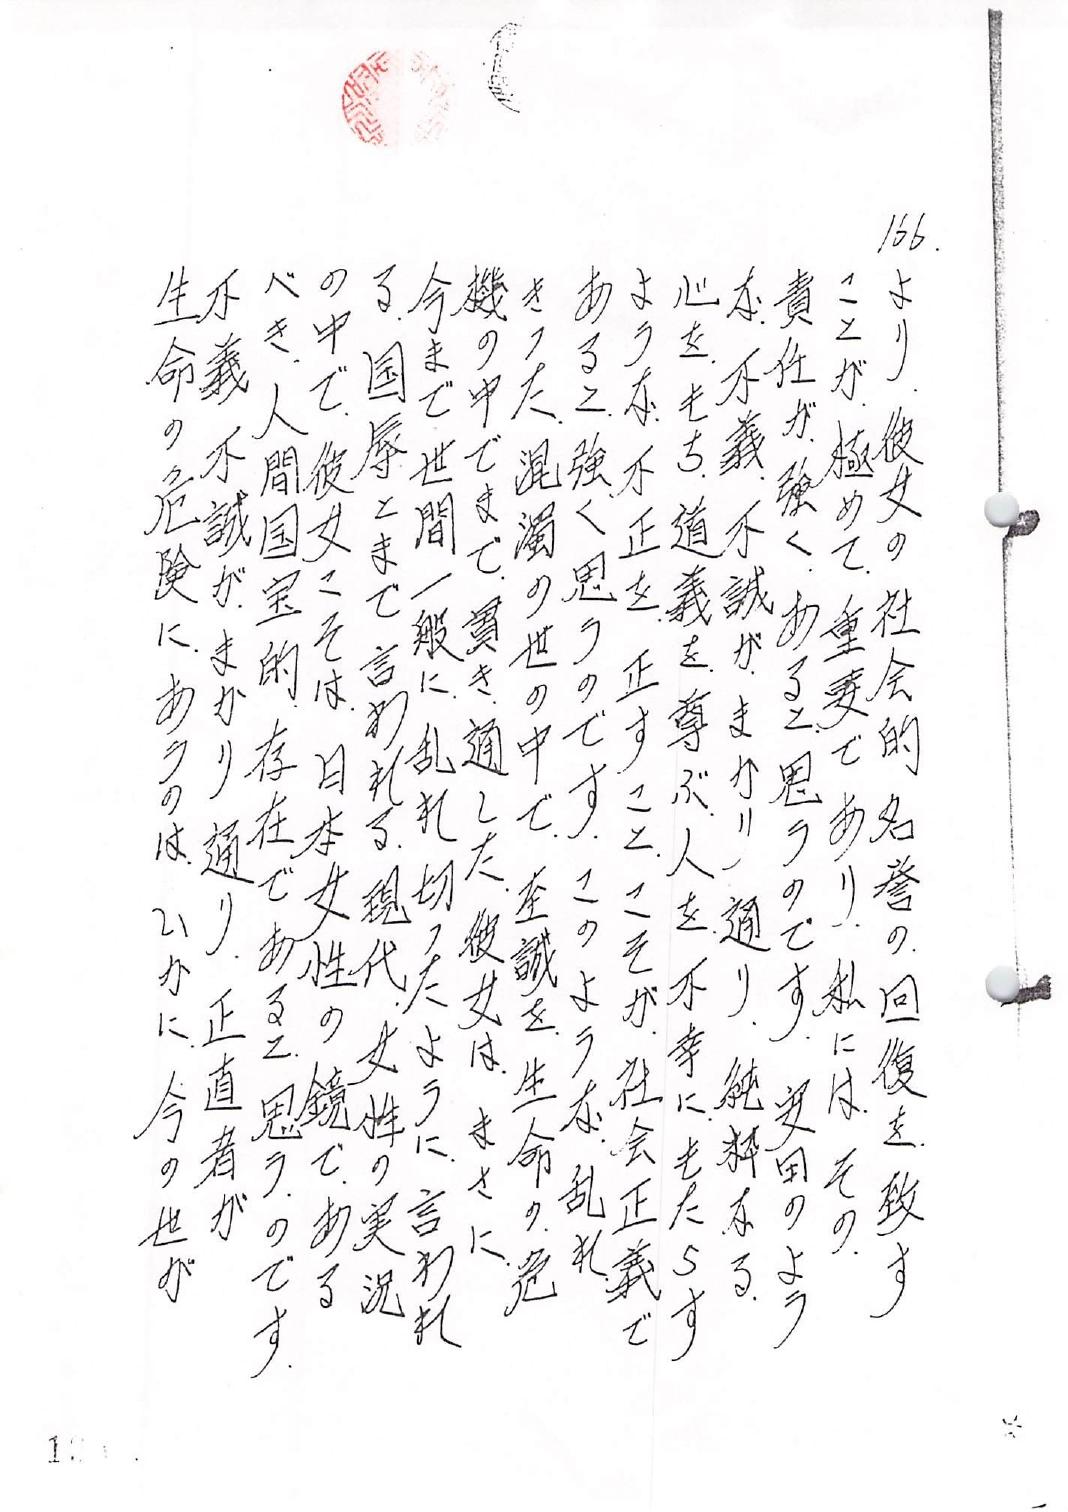 166.
より、彼女の社会的名誉の回復を致す
ことが、極めて、重要であり、私には、その、
責任が、強く、あると、思うのです。安田のよう
な、不義、不誠が、まかり通り、純粋なる、
心を、もち、道義を、尊ぶ、人を、不幸に、もたらす
ような、不正を、正すこと、こそが、社会正義で
あると、強く思うのです。このような、乱れ、
きった、混濁の世の中で、至誠を、生命の、危
機の中でまで、貫き、通した、彼女は、まさに、
今まで世間一般に、乱れ切ったように、言われ
る、国辱とまで言われる、現代、女性の実況
の中で、彼女こそは、日本女性の鏡で、ある
べき、人間国宝的、存在であると、思う、のです。
不義、不誠が、まかり通り、正直者が
生命の危険に、あうのは、いかに、今の世が